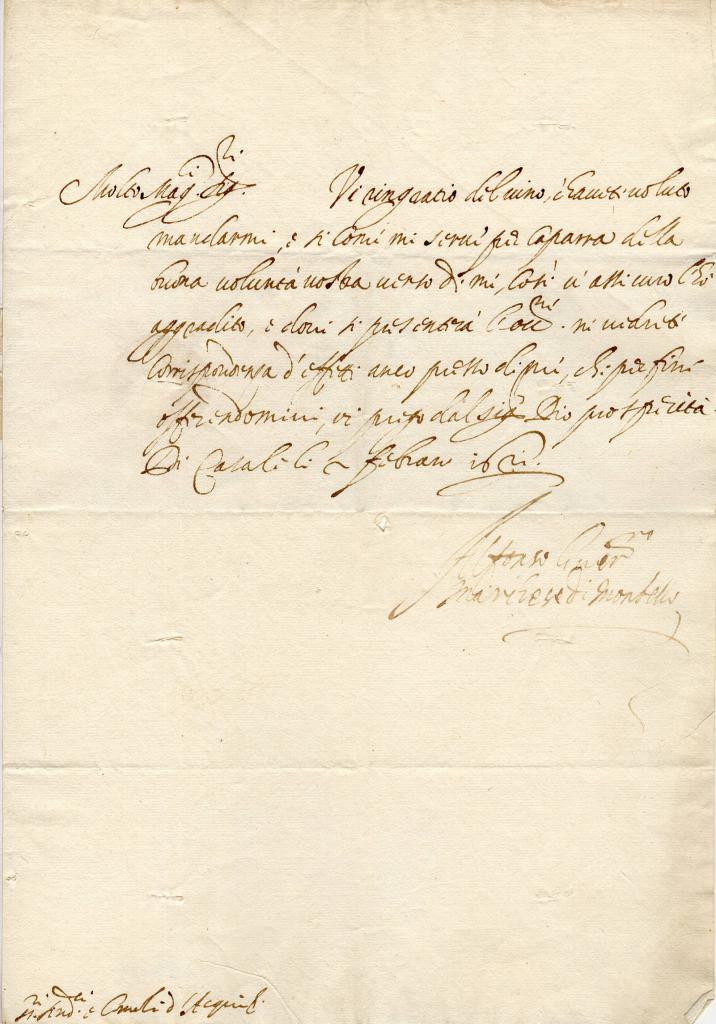 Molto Mag.ci Sig.ri Vi ringratio del vino, ch'avete voluto
mandarmi, e si come mi serve per caparra della
buona volontà vostra verso di me, così v'assicuro che
aggradito, e dove si presenterà l'occ.ne ne vedrete
corrispondenza d'effetti anco presto di più, che per fine
offerendomivi, vi prego dal Sig.r Dio prosperità.
Di Casale li febraro
Alfonso
Marchese di Montello
Sind.ci e d'Acqui